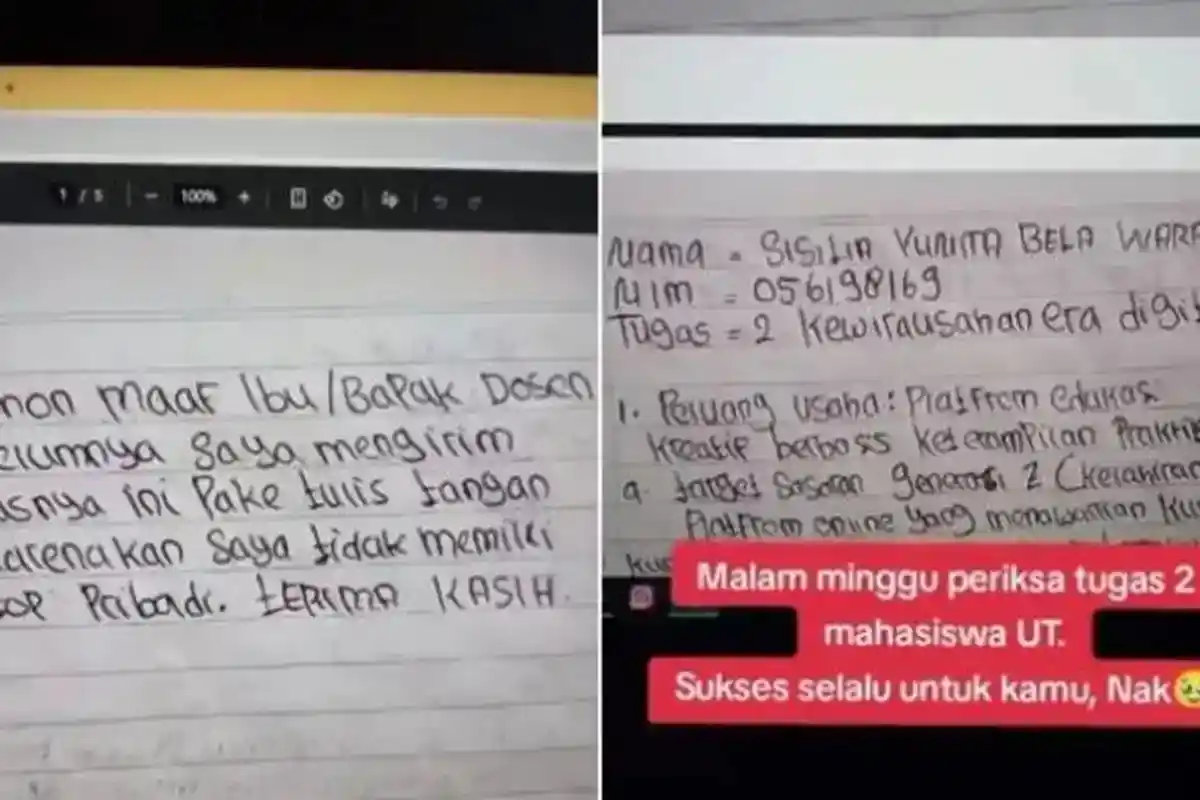 1 / 5 − 100% +
mon maaf Ibu/Bapak Dosen
elumnya saya mengirim
asnya ini Pake tulis tangan
arenakan saya tidak memiliki
top Pribadi. TERIMA KASIH.
Nama = SISILIA YUNITA BELA WARA
NIM = 056198169
Tugas = 2 Kewirausahan era digit
1. Peluang usaha: Platfrom edukasi
kreatif berbass keterampilan Prakti
a. target Sasaran generasi Z (kelahiran
Platfrom online yang menawarkan Ku
Malam minggu periksa tugas 2
mahasiswa UT.
Sukses selalu untuk kamu, Nak🥹